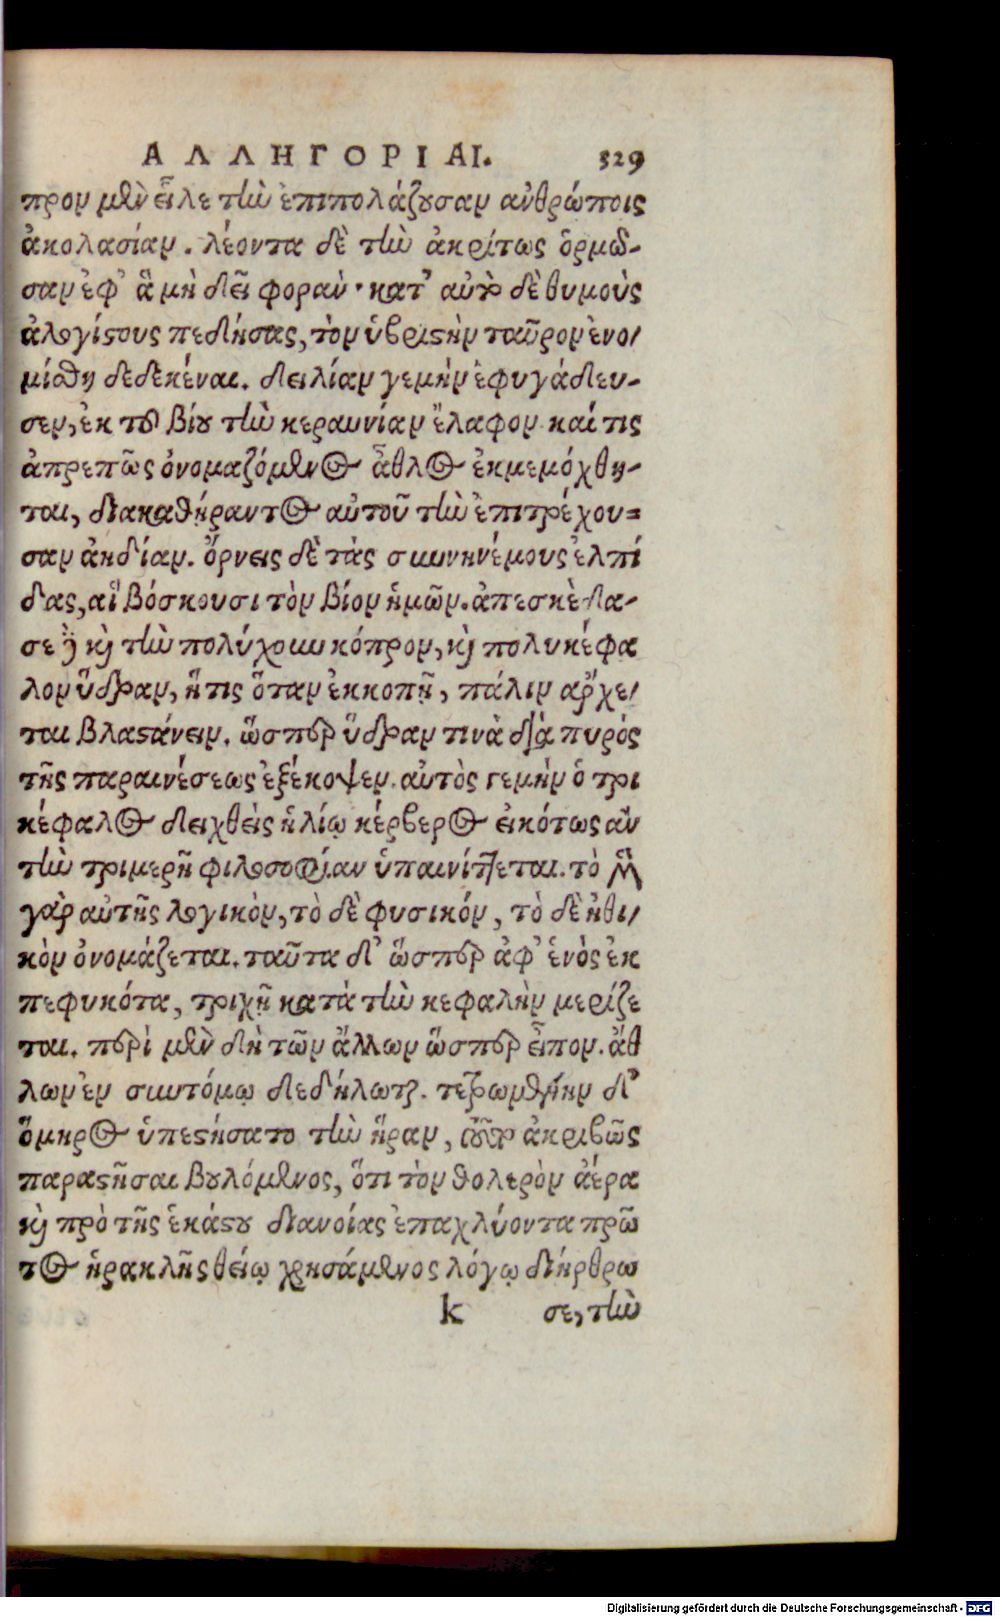 ΑΛΛΗΓΟΡΙΑΙ. 329
προν μὲν εἷλε τὴν ἐπιπολάζουσαν ἀνθρώποις
ἀκολασίαν. λέοντα δὲ τὴν ἀκρίτως ὁρμῶ-
σαν ἐφ' ἃ μὴ δεῖ φοράν· κατ' αὐτὸ δὲ θυμοὺς
ἀλογίστους πεδήσας, τὸν ὑβριστὴν ταῦρον ἐνο/
μίσθη δεδεκέναι. δειλίαν γεμὴν ἐφυγάδευ-
σεν, ἐκ τοῦ βίου τὴν κεραυνίαν ἔλαφον καί τις
ἀπρεπῶς ὀνομαζόμενος ἆθλος ἐκμεμόχθη-
ται, διακαθήραντος αὐτοῦ τὴν ἐπιτρέχου=
σαν ἀηδίαν. ὄρνεις δὲ τὰς συνηνέμους ἐλπί
δας, αἳ βόσκουσι τὸν βίον ἡμῶν. ἀπεσκέδα-
σε καὶ τὴν πολύχουν κόπρον, καὶ πολυκέφα
λον ὕδραν, ἥτις ὅταν ἐκκοπῇ, πάλιν ἄρχε/
ται βλαστάνειν. ὥσπερ ὕδραν τινὰ διὰ πυρὸς
τῆς παραινέσεως ἐξέκοψεν. αὐτὸς γεμὴν ὁ τρι
κέφαλος δειχθεὶς ἡλίῳ κέρβερος εἰκότως ἂν
τὴν τριμερῆ φιλοσοφίαν ὑπαινίττεται. τὸ μὲν
γὰρ αὐτῆς λογικὸν, τὸ δὲ φυσικόν, τὸ δὲ ἠθι/
κὸν ὀνομάζεται. ταῦτα δ' ὥσπερ ἀφ' ἑνὸς ἐκ
πεφυκότα, τριχῇ κατὰ τὴν κεφαλὴν μερίζε
ται. περὶ μὲν δὴ τῶν ἄλλων ὥσπερ εἶπον. ἄθ
λων ἐν συντόμῳ δεδήλωται. τετρωμένην δ'
ὅμηρος ὑπεστήσατο τὴν ἥραν, τοῦτο ἀκριβῶς
παραστῆσαι βουλόμενος, ὅτι τὸν θολερὸν ἀέρα
καὶ πρὸ τῆς ἑκάστου διανοίας ἐπαχλύοντα πρῶ
τος ἡρακλῆς θείῳ χρησάμενος λόγῳ διήρθρω
k σε, τὴν
Digitalisierung gefördert durch die Deutsche Forschungsgemeinschaft - DFG